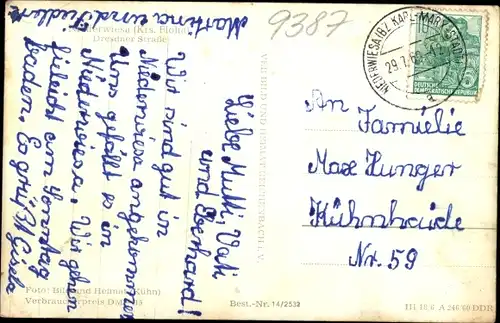 9387
Niederwiesa (Krs. Flöha)
Dresdner Straße
Liebe Mutti, Vati
und Eberhard!
Wir sind gut in
Niederwiesa angekommen
Uns gefällt es in
Niederwiesa. Wir gehen
fieleicht am Sonntag
baden. Es grüßt Gisela
Martina und
Foto: Bild und Heimat (Kühn)
Verbraucherpreis DM
Best.-Nr. 14/2532
NIEDERWIESA (BZ KARL-MARX-STADT)
29.7.60
DEUTSCHE
DEMOKRATISCHE REPUBLIK
An Famielie
Max Hunger
Kühnhaide
Nr. 59
III 18.6 A 246/60 DDR